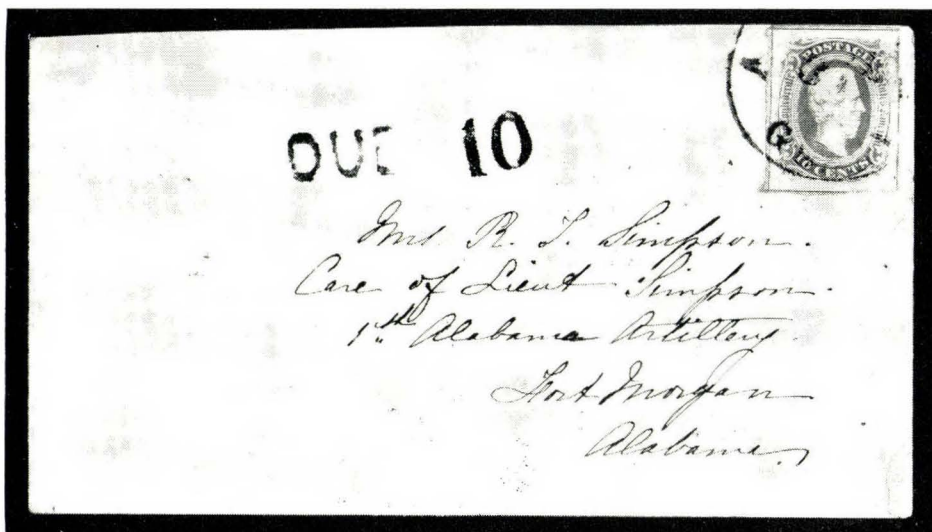 POSTAGE
TEN CENTS
DUE 10
Mrs R. T. Simpson.
Care of Lieut Simpson.
1st Alabama Artillery.
Fort Morgan
Alabama.